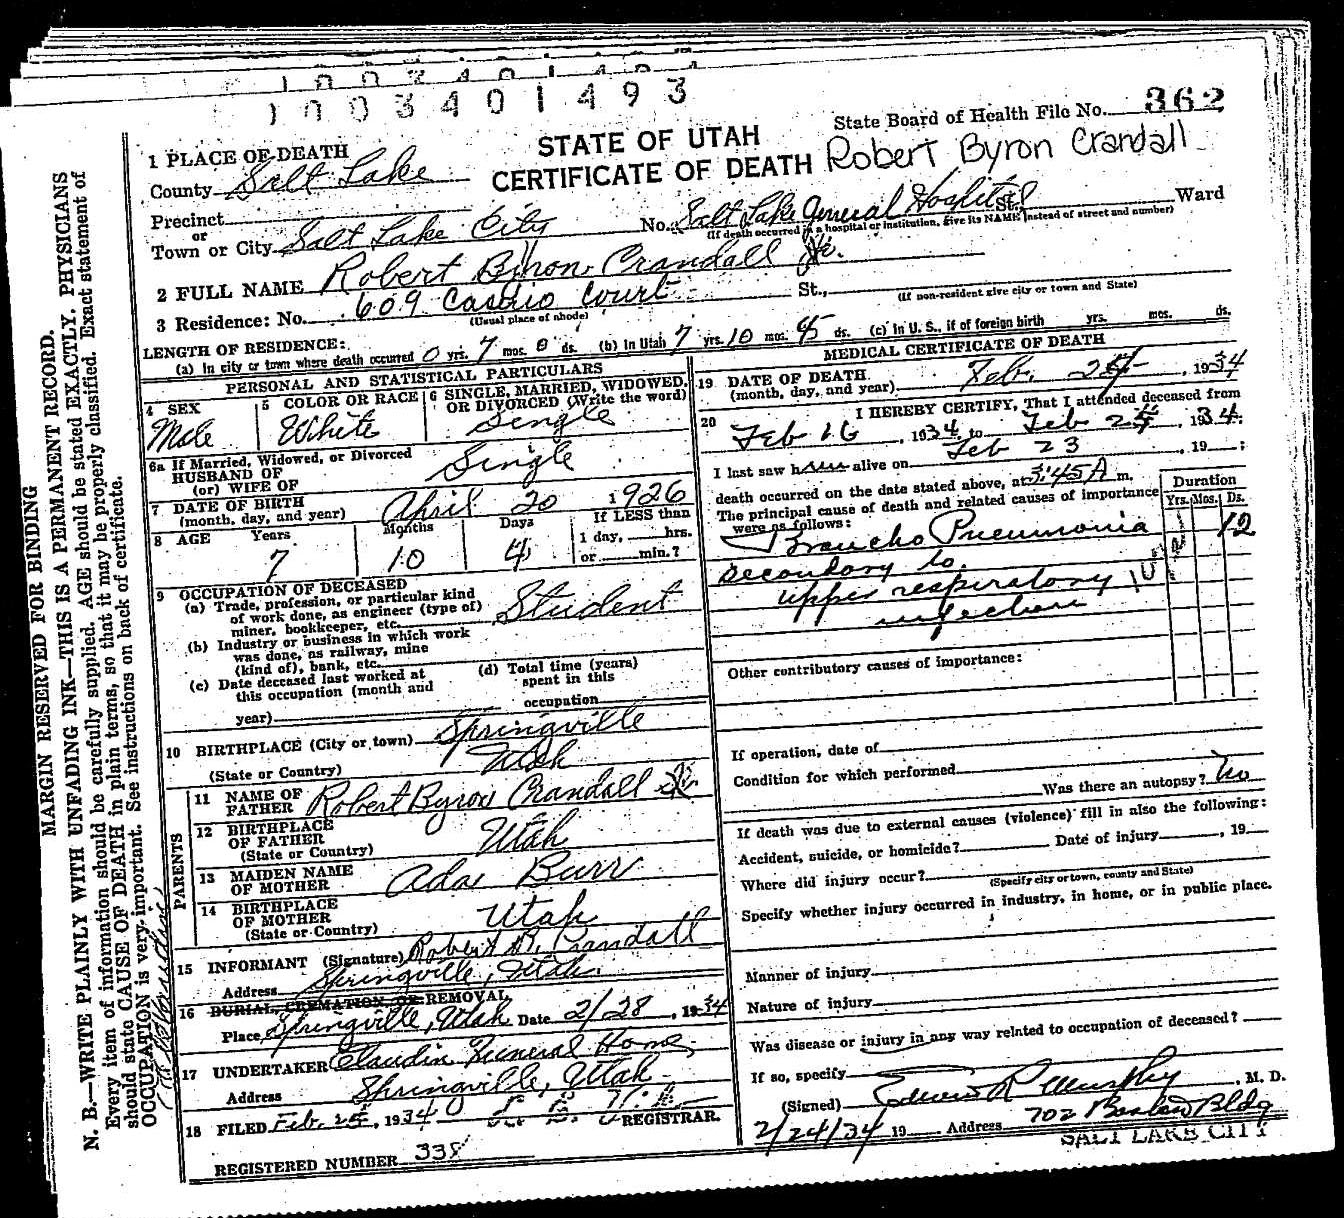 1003401493
State Board of Health File No. 362
STATE OF UTAH
CERTIFICATE OF DEATH
Robert Byron Crandall
1 PLACE OF DEATH
County Salt Lake
Precinct
or
Town or City Salt Lake City No. Salt Lake General Hospital St. Ward
(If death occurred in a hospital or institution, give its NAME instead of street and number)
2 FULL NAME Robert Byron Crandall Jr.
3 Residence: No. 609 Court St.,
(Usual place of abode) (If non-resident give city or town and State)
LENGTH OF RESIDENCE:
(a) In city or town where death occurred 0 yrs. 7 mos. 0 ds. (b) In Utah 7 yrs. 10 mos. ds. (c) In U. S., if of foreign birth yrs. mos. ds.
PERSONAL AND STATISTICAL PARTICULARS
4 SEX Male
5 COLOR OR RACE White
6 SINGLE, MARRIED, WIDOWED, OR DIVORCED (Write the word) Single
6a If Married, Widowed, or Divorced
HUSBAND OF
(or) WIFE OF Single
7 DATE OF BIRTH
(month, day, and year) April 20 1926
8 AGE Years Months Days If LESS than
1 day, hrs.
7 10 4 or min.?
9 OCCUPATION OF DECEASED
(a) Trade, profession, or particular kind
of work done, as engineer (type of)
miner, bookkeeper, etc. Student
(b) Industry or business in which work
was done, as railway, mine
(kind of), bank, etc.
(c) Date deceased last worked at
this occupation (month and
year)
(d) Total time (years)
spent in this
occupation
10 BIRTHPLACE (City or town) Springville
(State or Country) Utah
PARENTS
11 NAME OF
FATHER Robert Byron Crandall Sr
12 BIRTHPLACE
OF FATHER
(State or Country) Utah
13 MAIDEN NAME
OF MOTHER Ada Burr
14 BIRTHPLACE
OF MOTHER
(State or Country) Utah
15 INFORMANT (Signature) Robert B. Crandall
Address Springville, Utah.
16 BURIAL, CREMATION, OR REMOVAL
Place Springville, Utah Date 2/28, 1934
17 UNDERTAKER Claudin Funeral Home
Address Springville, Utah
18 FILED Feb. , 1934 REGISTRAR.
REGISTERED NUMBER 338
MEDICAL CERTIFICATE OF DEATH
19 DATE OF DEATH
(month, day, and year) Feb. 24, 1934
20 I HEREBY CERTIFY, That I attended deceased from
Feb 16, 1934, to Feb 24, 1934.
I last saw him alive on Feb 23, 19 ;
death occurred on the date stated above, at 3:45 A m.
The principal cause of death and related causes of importance
were as follows:
Duration
Yrs. Mos. Ds.
Broncho Pneumonia 12
secondary to
upper respiratory
infection
Other contributory causes of importance:
If operation, date of
Condition for which performed
Was there an autopsy? No
If death was due to external causes (violence) fill in also the following:
Accident, suicide, or homicide? Date of injury , 19
Where did injury occur?
(Specify city or town, county and State)
Specify whether injury occurred in industry, in home, or in public place.
Manner of injury
Nature of injury
Was disease or injury in any way related to occupation of deceased?
If so, specify
(Signed) Edwin R Murphy, M. D.
2/24/34 19 Address 702 Boston Bldg
SALT LAKE CITY
MARGIN RESERVED FOR BINDING
N. B.—WRITE PLAINLY WITH UNFADING INK—THIS IS A PERMANENT RECORD.
Every item of information should be carefully supplied. AGE should be stated EXACTLY. PHYSICIANS
should state CAUSE OF DEATH in plain terms, so that it may be properly classified. Exact statement of
OCCUPATION is very important. See instructions on back of certificate.